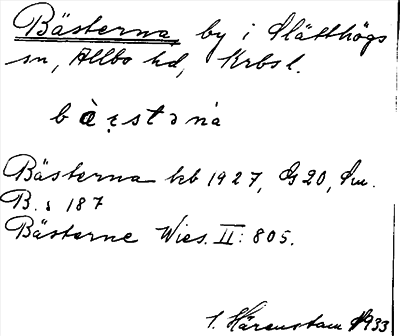 Bästerna, by i Slätthögs
sn, Allbo hd, Krbs l.
Bästerna kb 1927, G 20, Sm.
B. s 187
Bästerne Wies. II: 805.
Härenstam 1933